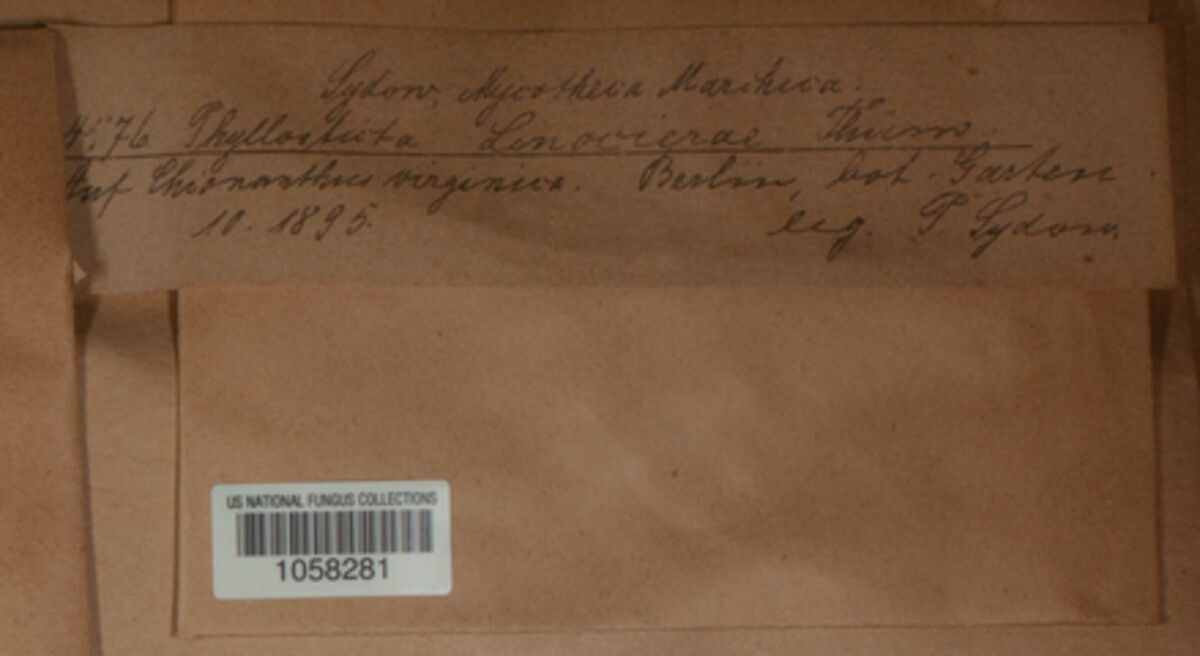 Sydow, Mycotheca Marchica.
76 Phyllosticta Linocierae Thüm.
Auf Chionanthus virginica. Berlin, bot. Garten.
10. 1895. leg. P. Sydow.
US NATIONAL FUNGUS COLLECTIONS
1058281